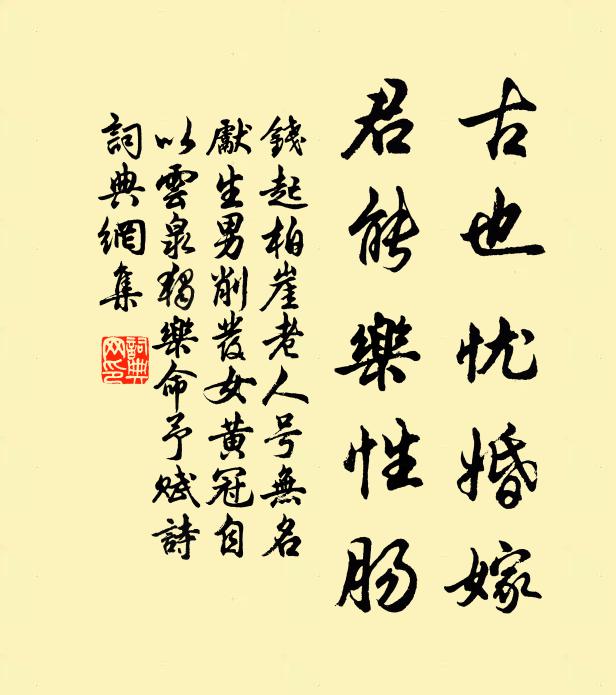 古也忧婚嫁
君能樂性肠
錢起柏崖老人号無名
獻生男削发女黄冠自
以雲泉獨樂命予賦詩
詞典網集
詞典网印